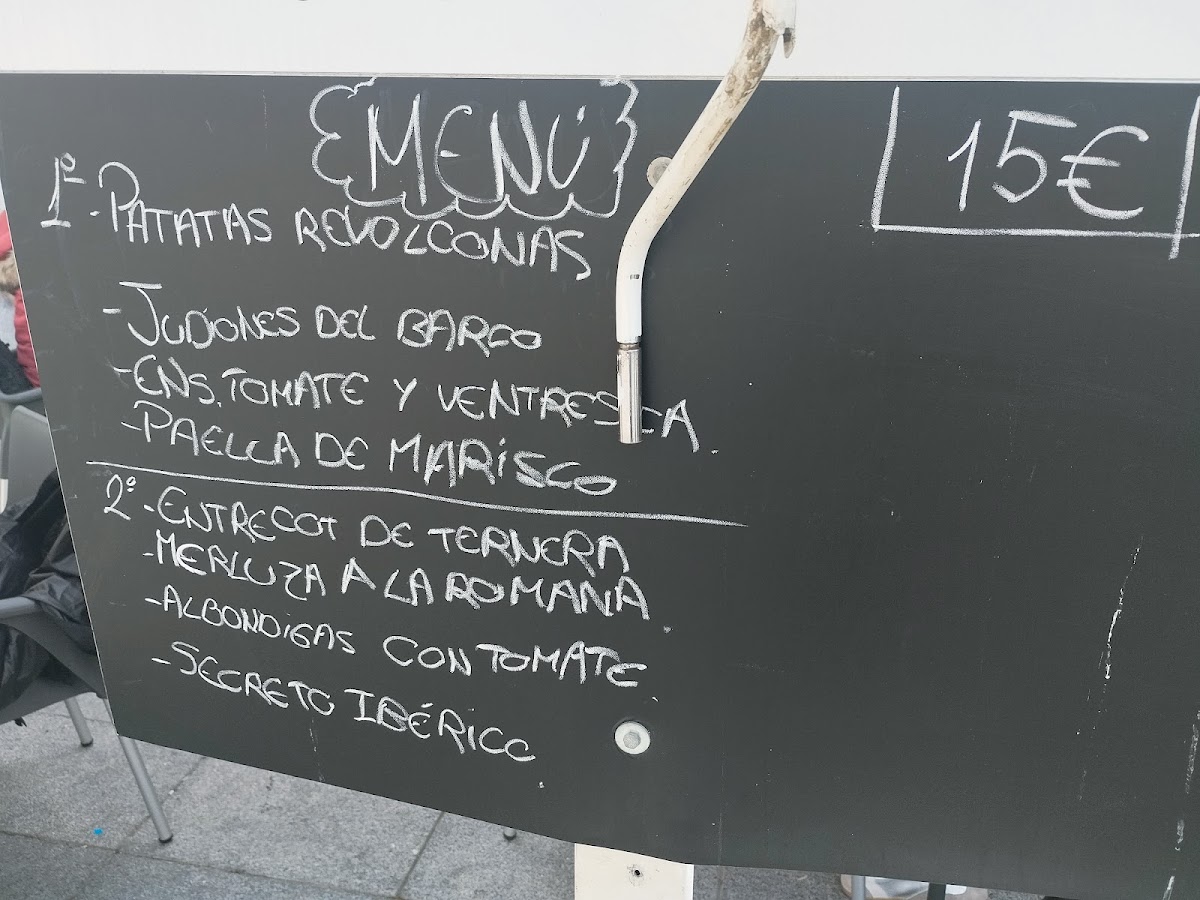 MENÚ
15€
1º - PATATAS REVOLCONAS
- JUDIONES DEL BARCO
- ENS. TOMATE Y VENTRESCA.
- PAELLA DE MARISCO
2º - ENTRECOT DE TERNERA
- MERLUZA A LA ROMANA.
- ALBONDIGAS CON TOMATE.
- SECRETO IBÉRICO.